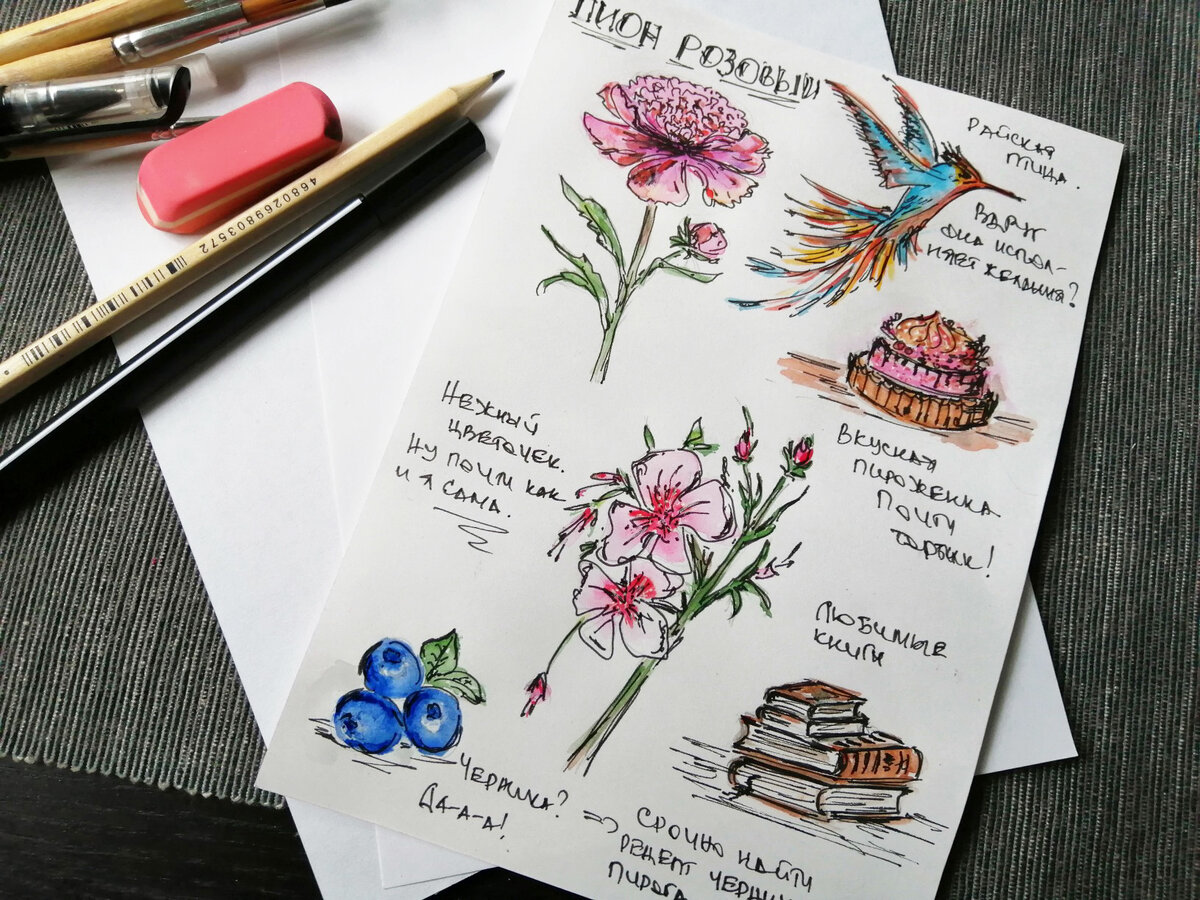 ПИОН РОЗОВЫЙ
РАЙСКАЯ
ПТИЦА.
ВДРУГ
ОНА ИСПОЛ-
НЯЕТ ЖЕЛАНИЯ?
4680269803572
НЕЖНЫЙ
ЦВЕТОЧЕК.
НУ ПОЧТИ КАК
И Я САМА.
ВКУСНАЯ
ПИРОЖЕНКА
ПОЧТИ
ТОРТИК!
ЛЮБИМЫЕ
КНИГИ
ЧЕРНИКА?
ДА-А-А!
=> СРОЧНО НАЙТИ
РЕЦЕПТ
ПИРОГА